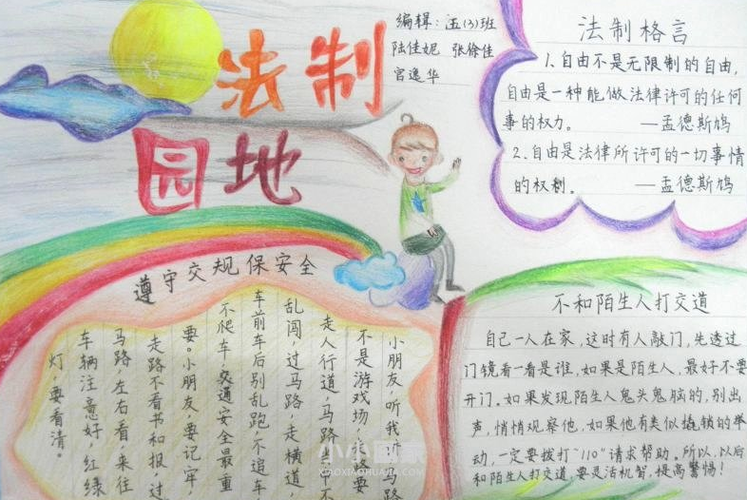 法制
园地
编辑：五(3)班
陆佳妮 张徐佳
宫逸华
法制格言
1.自由不是无限制的自由，
自由是一种能做法律许可的任何
事的权力。 ——孟德斯鸠
2.自由是法律所许可的一切事情
的权利。 ——孟德斯鸠
遵守交规保安全
小朋友，听我 马路
不是游戏场， 要
走人行道，马路 中不
乱闯，过马路，走横道，
车前车后别乱跑，不追车
不爬车，交通安全最重
要。小朋友，要记牢，
走路不看书和报，过
马路左右看，来往
车辆注意好，红绿
灯，要看清。
不和陌生人打交道
自己一人在家，这时有人敲门，先透过
门镜看一看是谁，如果是陌生人，最好不要
开门。如果发现陌生人鬼头鬼脑的，别出
声，悄悄观察他，如果他有类似撬锁的举
动，一定要拨打"110"请求帮助。所以，以后
和陌生人打交道，要灵活机智，提高警惕！
XIAOXIAOHUAJIA.COM